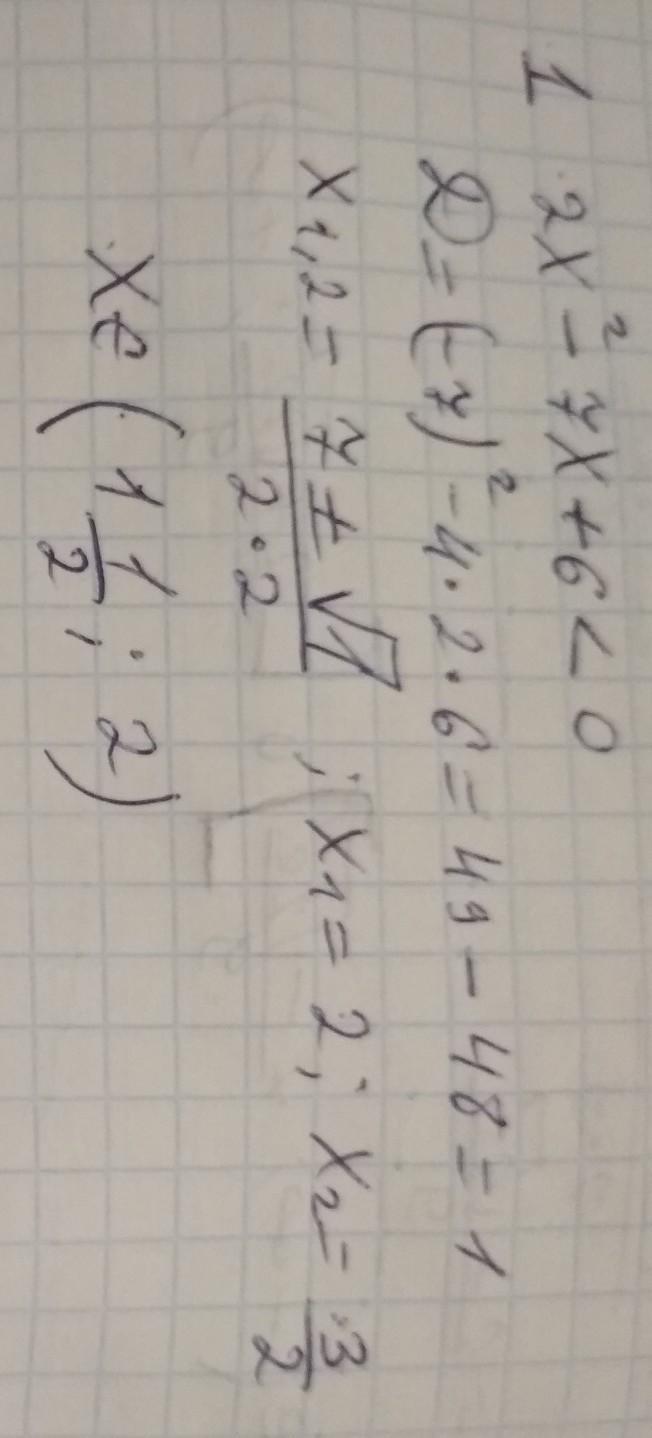 1 2x² - 7x + 6 < 0
D = (-7)² - 4·2·6 = 49 - 48 = 1
x1,2 = (7 ± √1)/(2·2) ; x1 = 2; x2 = 3/2
x ∈ (1 1/2 ; 2)